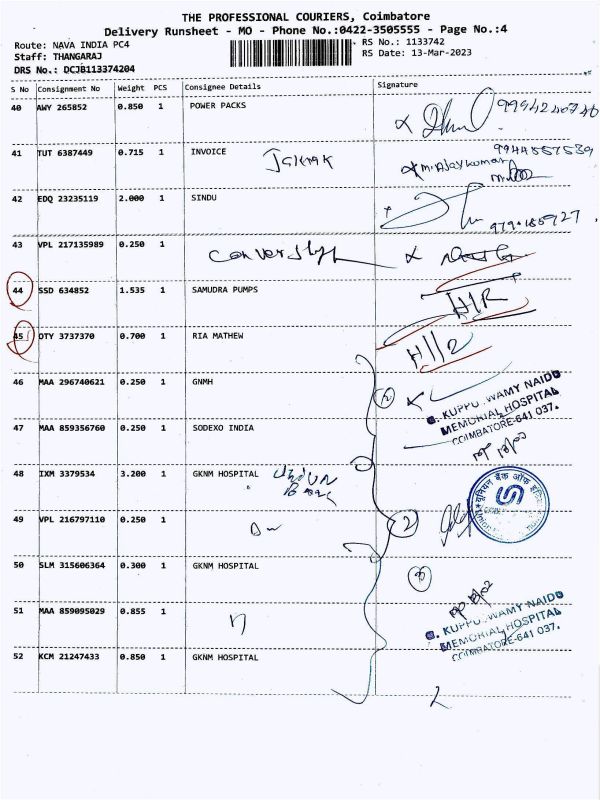 THE PROFESSIONAL COURIERS, Coimbatore
Delivery Runsheet - MO - Phone No.:0422-3505555 - Page No.:4
Route: NAVA INDIA PC4
RS No.: 1133742
Staff: THANGARAJ
RS Date: 13-Mar-2023
DRS No.: DCJB113374204
S No Consignment No Weight PCS Consignee Details Signature
40 AWY 265852 0.850 1 POWER PACKS 9994240746
41 TUT 6387449 0.715 1 INVOICE 9944557539
M. Ajaykumar
42 EDQ 23235119 2.000 1 SINDU
43 VPL 217135989 0.250 1
44 SSD 634852 1.535 1 SAMUDRA PUMPS
45 OTY 3737370 0.700 1 RIA MATHEW
46 MAA 296740621 0.250 1 GNMH
G. KUPPUSWAMY NAIDU
MEMORIAL HOSPITAL
COIMBATORE-641 037.
47 MAA 859356760 0.250 1 SODEXO INDIA
48 IXM 3379534 3.200 1 GKNM HOSPITAL
49 VPL 216797110 0.250 1
2
50 SLM 315606364 0.300 1 GKNM HOSPITAL
51 MAA 859095029 0.855 1
G. KUPPUSWAMY NAIDU
MEMORIAL HOSPITAL
COIMBATORE-641 037.
52 KCM 21247433 0.850 1 GKNM HOSPITAL